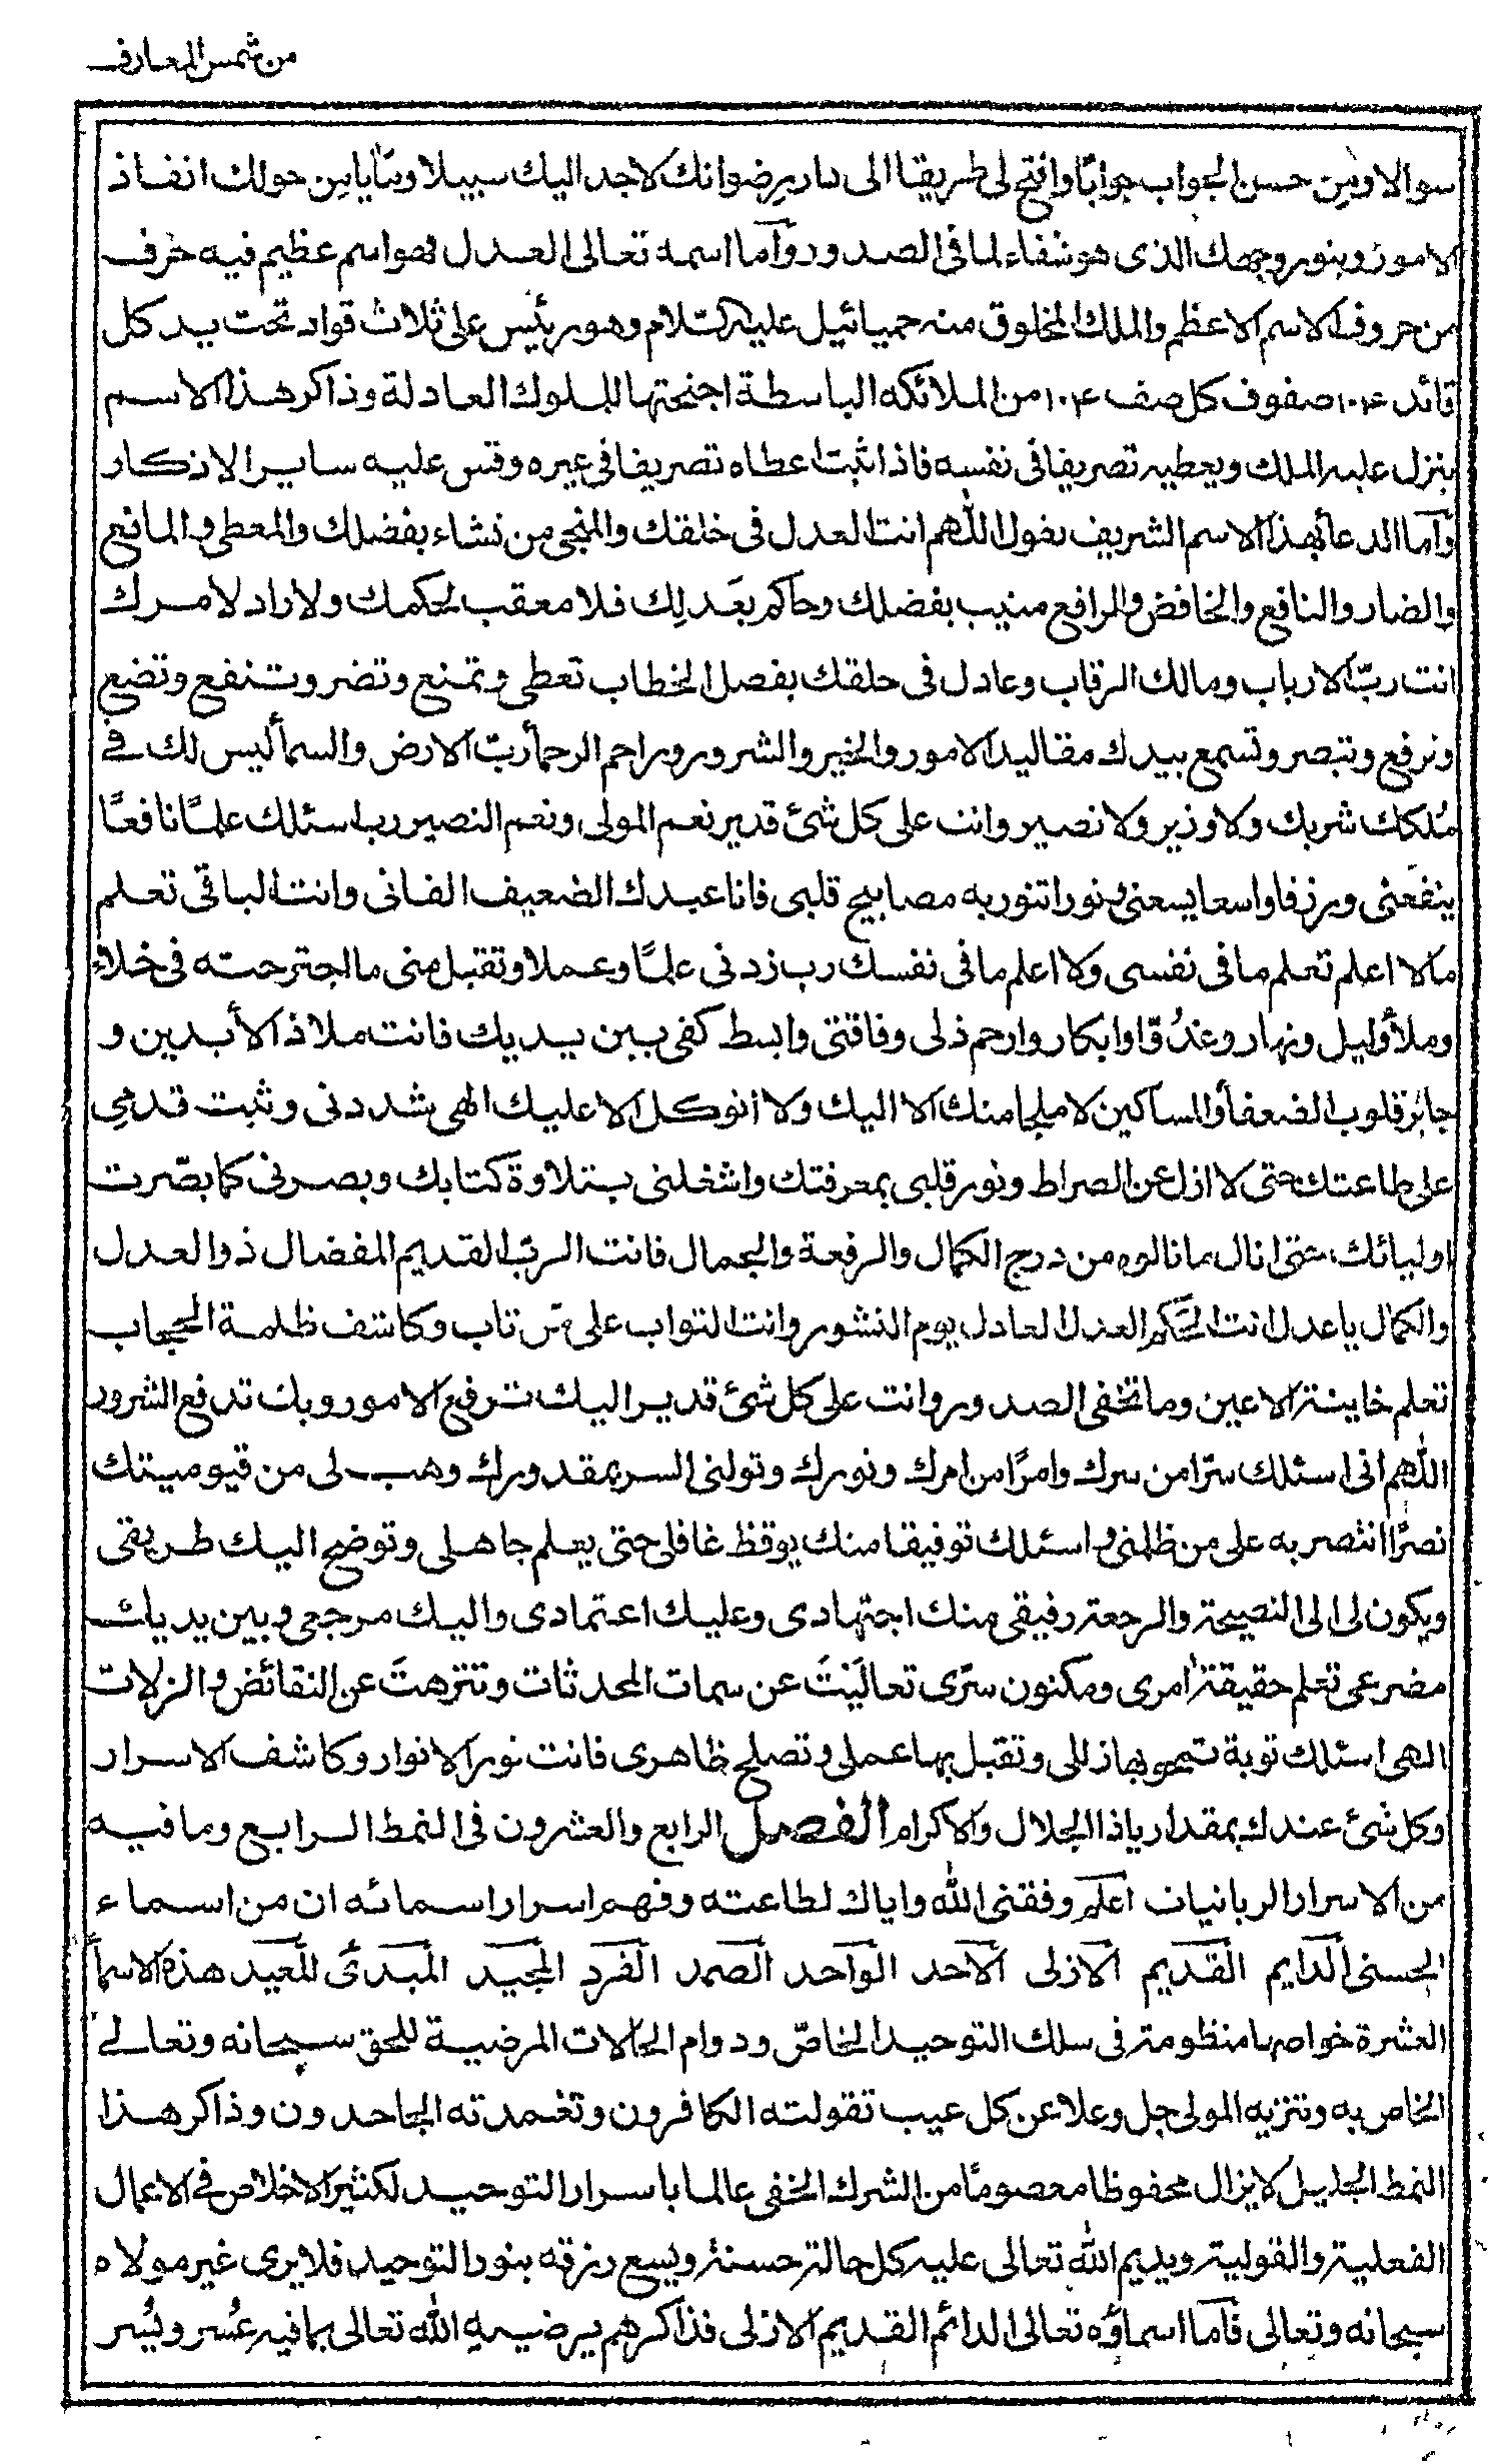 من شمس المعارف
سوالا ومن حسن الجواب جوابا وافتح لى طريقا الى دار رضوانك لاجد اليك سبيلا ومنايا من حولك انفاذ
الامور وبنور وجهك الذى هو شفاء لما فى الصدور وآما اسمه تعالى العدل فهو اسم عظيم فيه حرف
من حروف الاسم الاعظم والملك المخلوق منه حميائيل عليه السلام وهو رئيس على ثلاث قواد تحت يد كل
قائد ١٠٤ صفوف كل صف ١٠٤ من الملائكه الباسطة اجنحتها للملوك العادلة وذاكر هذا الاسم
ينزل عليه الملك ويعطيه تصريفا فى نفسه فاذا ثبت اعطاه تصريفا فى غيره وقس عليه ساير الاذكار
وآما الدعأ بهذا الاسم الشريف يقول اللهم انت العدل فى خلقك والمنجى من نشاء بفضلك والمعطى والمانع
والضار والنافع والخافض والرافع منيب بفضلك وحاكم بعَدلِك فلا معقب لحكمك ولا راد لامرك
انت ربّ الارباب ومالك الرقاب وعادل فى خلقك بفصل الخطاب تعطى وتمنع وتضر وتنفع وتضع
وترفع وتبصر وتسمع بيدك مقاليد الامور والخير والشرور وراحم الرحمأ ربّ الارض والسمأ ليس لك فى
مُلكك شريك ولا وزير ولا نصير وانت على كل شئ قدير نعم المولى ونعم النصير رب اسئلك علمًا نافعًا
ينفعنى ورزقا واسعا يسعنى ونورا تنور به مصابيح قلبى فانا عبدك الضعيف الفانى وانت الباقى تعلم
مالا اعلم تعلم ما فى نفسى ولا اعلم ما فى نفسك رب زدنى علمًا وعملا وتقبل منى ما اجترحته فى خلاء
وملأ وليل ونهار وغدُوّا وابكار وارحم ذلى وفاقتى وابسط كفى بين يديك فانت ملاذ الأبدين و
جابر قلوب الضعفأ والمساكين لا ملجا منك الا اليك ولا اتوكل الا عليك الهى شددنى وثبت قدمى
على طاعتك حتى لا ازل عن الصراط ونور قلبى بمعرفتك واشغلنى بتلاوة كتابك وبصرنى كما بصّرت
اوليائك حتى انال ما نالوه من درج الكمال والرفعة والجمال فانت الربّ القديم المفضال ذو العدل
والكمال يا عدل انت الحَكم العدل العادل يوم النشور وانت التواب على مَن تاب وكاشف ظلمة الحجاب
تعلم خاينة الاعين وما تخفى الصدور وانت على كل شئ قدير اليك ترفع الامور وبك تدفع الشرور
اللهم انى اسئلك سرّا من سرك وامرًا من امرك ونورك وتولنى السر بمقدورك وهب لى من قيوميتك
نصرًا انتصر به على من ظلمنى واسئلك توفيقا منك يوقظ غافلى حتى يعلم جاهلى وتوضح اليك طريقى
ويكون لى الى النصيحة والرجعة رفيقى منك اجتهادى وعليك اعتمادى واليك مرجعى وبين يديك
مضرعى تعلم حقيقة امرى ومكنون سرّى تعاليَتَ عن سمات المحدثات وتنزهتَ عن النقائض والزلات
الهى اسئلك توبة تمحو بها زللى وتقبل بها عملى وتصلح ظاهرى فانت نور الانوار وكاشف الاسرار
وكل شئ عندك بمقدار ياذا الجلال والاكرام الفصل الرابع والعشرون فى النمط الرابع وما فيه
من الاسرار الربانيات اعلم وفقنى الله واياك لطاعته وفهم اسرار اسمائه ان من اسماء
الحسنى الدايم القديم الازلى الاحد الواحد الصمد الفرد المجيد المبدئ المعيد هذه الاسمأ
العشرة خواصها منظومة فى سلك التوحيد الخاصّ ودوام الحالات المرضية للحق سبحانه وتعالى
الخاص به وتنزيه المولى جل وعلا عن كل عيب تقولته الكافرون وتغمدته الجاحدون وذاكر هذا
النمط الجليل لا يزال محفوظا معصومًا من الشرك الخفى عالما باسرار التوحيد لكثير الاخلاص فى الاعمال
الفعلية والقولية ويديم الله تعالى عليه كل حالة حسنة ويسع رزقه بنور التوحيد فلا يرى غير مولاه
سبحانه وتعالى فآما اسماؤه تعالى الدائم القديم الازلى فذاكرهم يرضيه الله تعالى بما فيه عُسر ويُسر